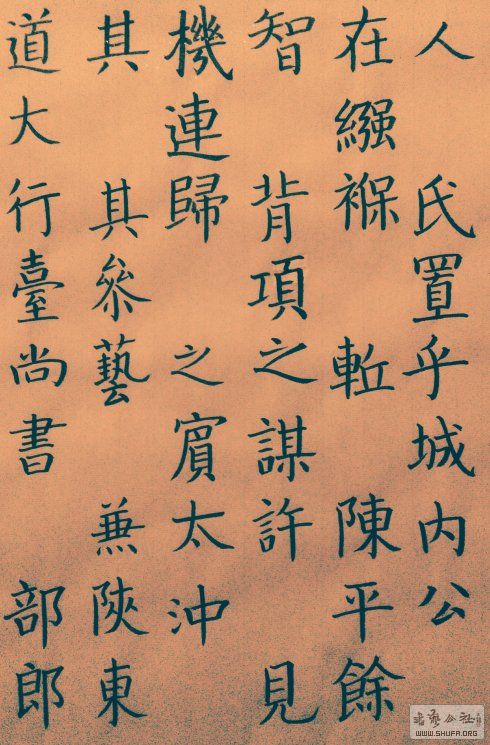 人 氏置乎城内公
在繦褓 陳平餘
智 背項之謀許 見
機連歸 之賔太沖
其 其叅藝 兼陝東
道大行臺尚書 部郎
书艺公社
WWW.SHUFA.ORG